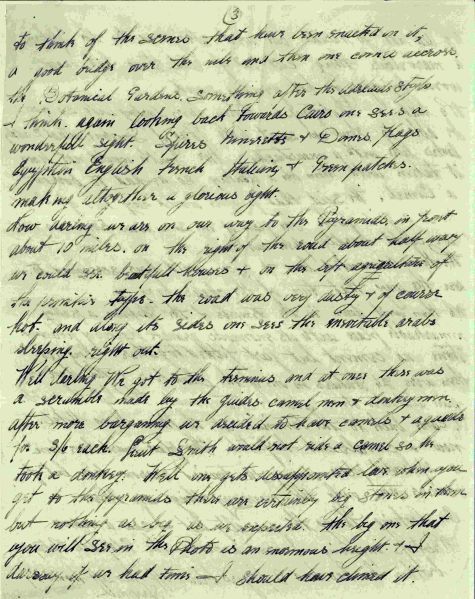 3
to think of the scenes that have been enacted in it,
a good bridge over the nile and then one comes accross
the Botanical Gardens, something after the Adelaide style
I think. again looking back towards Cairo one sees a
wonderfull sight. Spires Minerets & Domes, flags
Egyptian English French Italians & Green patches.
making altogether a glorious sight.
Now daring we are on our way to the Pyramids, in front
about 10 miles. on the right of the road about half way
we could see beautifull Houses & on the left agriculture of
the primitive type. the road was very dusty & of course
hot. and along its sides one sees the inevitable arabs
sleeping right out.
Well darling We got to the terminus and at once there was
a scramble made by the guides camel men & donkey men
after more bargaining we decided to have camels & a guide
for 3/6 each. Smith would not ride a camel so he
took a donkey. Well one gets dissapointed love when you
get to the pyramids there are certainly big stones in them
but nothing as big as we expected. the big one that
you will see in the Photo is an enormous height. & I
daresay if we had time I should have climed it.